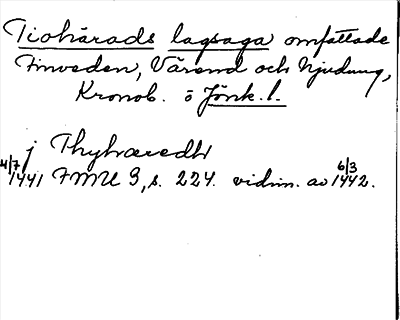 Tiohärads lagsaga omfattade
Finveden, Värend och Njudung,
Kronob. o Jönk. l.
j Thyhæredh
4/7 1441 FMU 3, s. 224. vidim. av 6/3 1442.